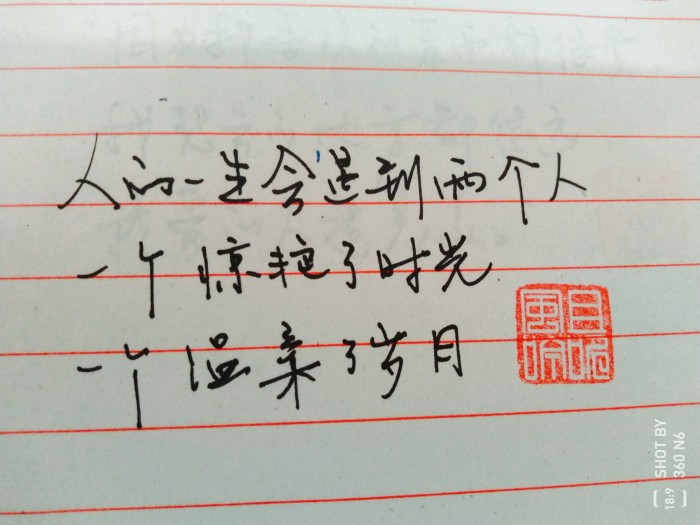 人的一生会遇到两个人
一个惊艳了时光
一个温柔了岁月
SHOT BY
360 N6
18:9